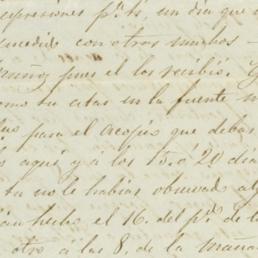 expresiones p.ª ti, un dia que
concedido con otros muchos
Muñoz pues el los recibió.
como tu citas en la fuente
para el acopio que debas
aqui y á los 15. ó 20 dias
tu no le habias observado
hecho el 16. del p.º de
otro á las 8, de la Mañana